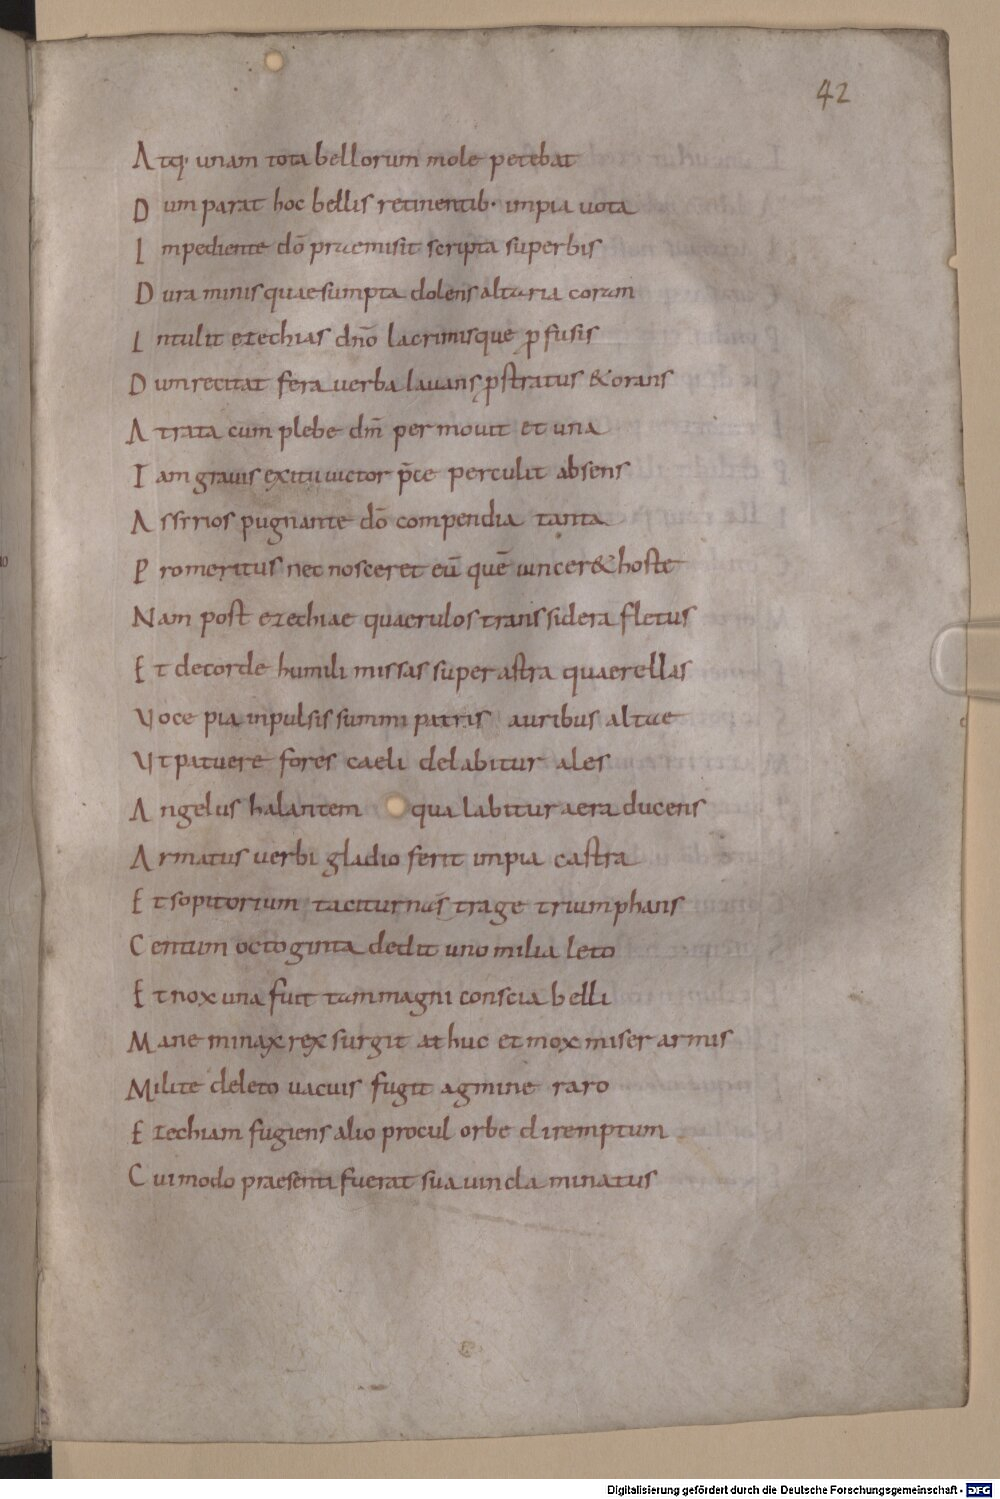 42
Atq· unam tota bellorum mole petebat
Dum parat hoc bellis retinentib· impia uota
Impediente dō praemisit scripta superbis
Dura minis quae sumpta dolens altaria coram
Intulit ezechias dnō lacrimisque ꝓfusis
Dum recitat fera uerba lauans ꝓstratus & orans
Atrata cum plebe dm̄ permouit et una
Iam grauis exitu uictor p̄ce perculit absens
Assirios pugnante dō compendia tanta
Promeritus nec nosceret eū quē uincer& hoste
Nam post ezechiae quaerulos trans sidera fletus
Et de corde humili missas super astra quaerellas
Voce pia inpulsis summi patris auribus altae
Vt patuere fores caeli delabitur ales
Angelus halantem qua labitur aera ducens
Armatus uerbi gladio ferit impia castra
Et sopitorium taciturnas trage triumphans
Centum octoginta dedit uno milia leto
Et nox una fuit tam magni conscia belli
Mane minax rex surgit athuc et mox miser armis
Milite deleto uacuis fugit agmine raro
Ezechiam fugiens alio procul orbe diremptum
Cui modo praesenti fuerat sua uincla minatus
Digitalisierung gefördert durch die Deutsche Forschungsgemeinschaft - DFG